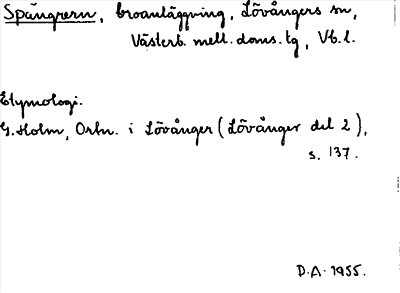 Spångrern, broanläggning, Lövångers sn,
Västerb. mell. doms. tg, Vb. l.
Etymologi.
G. Holm, Ortn. i Lövånger (Lövånger del 2),
s. 137.
D.A. 1955.